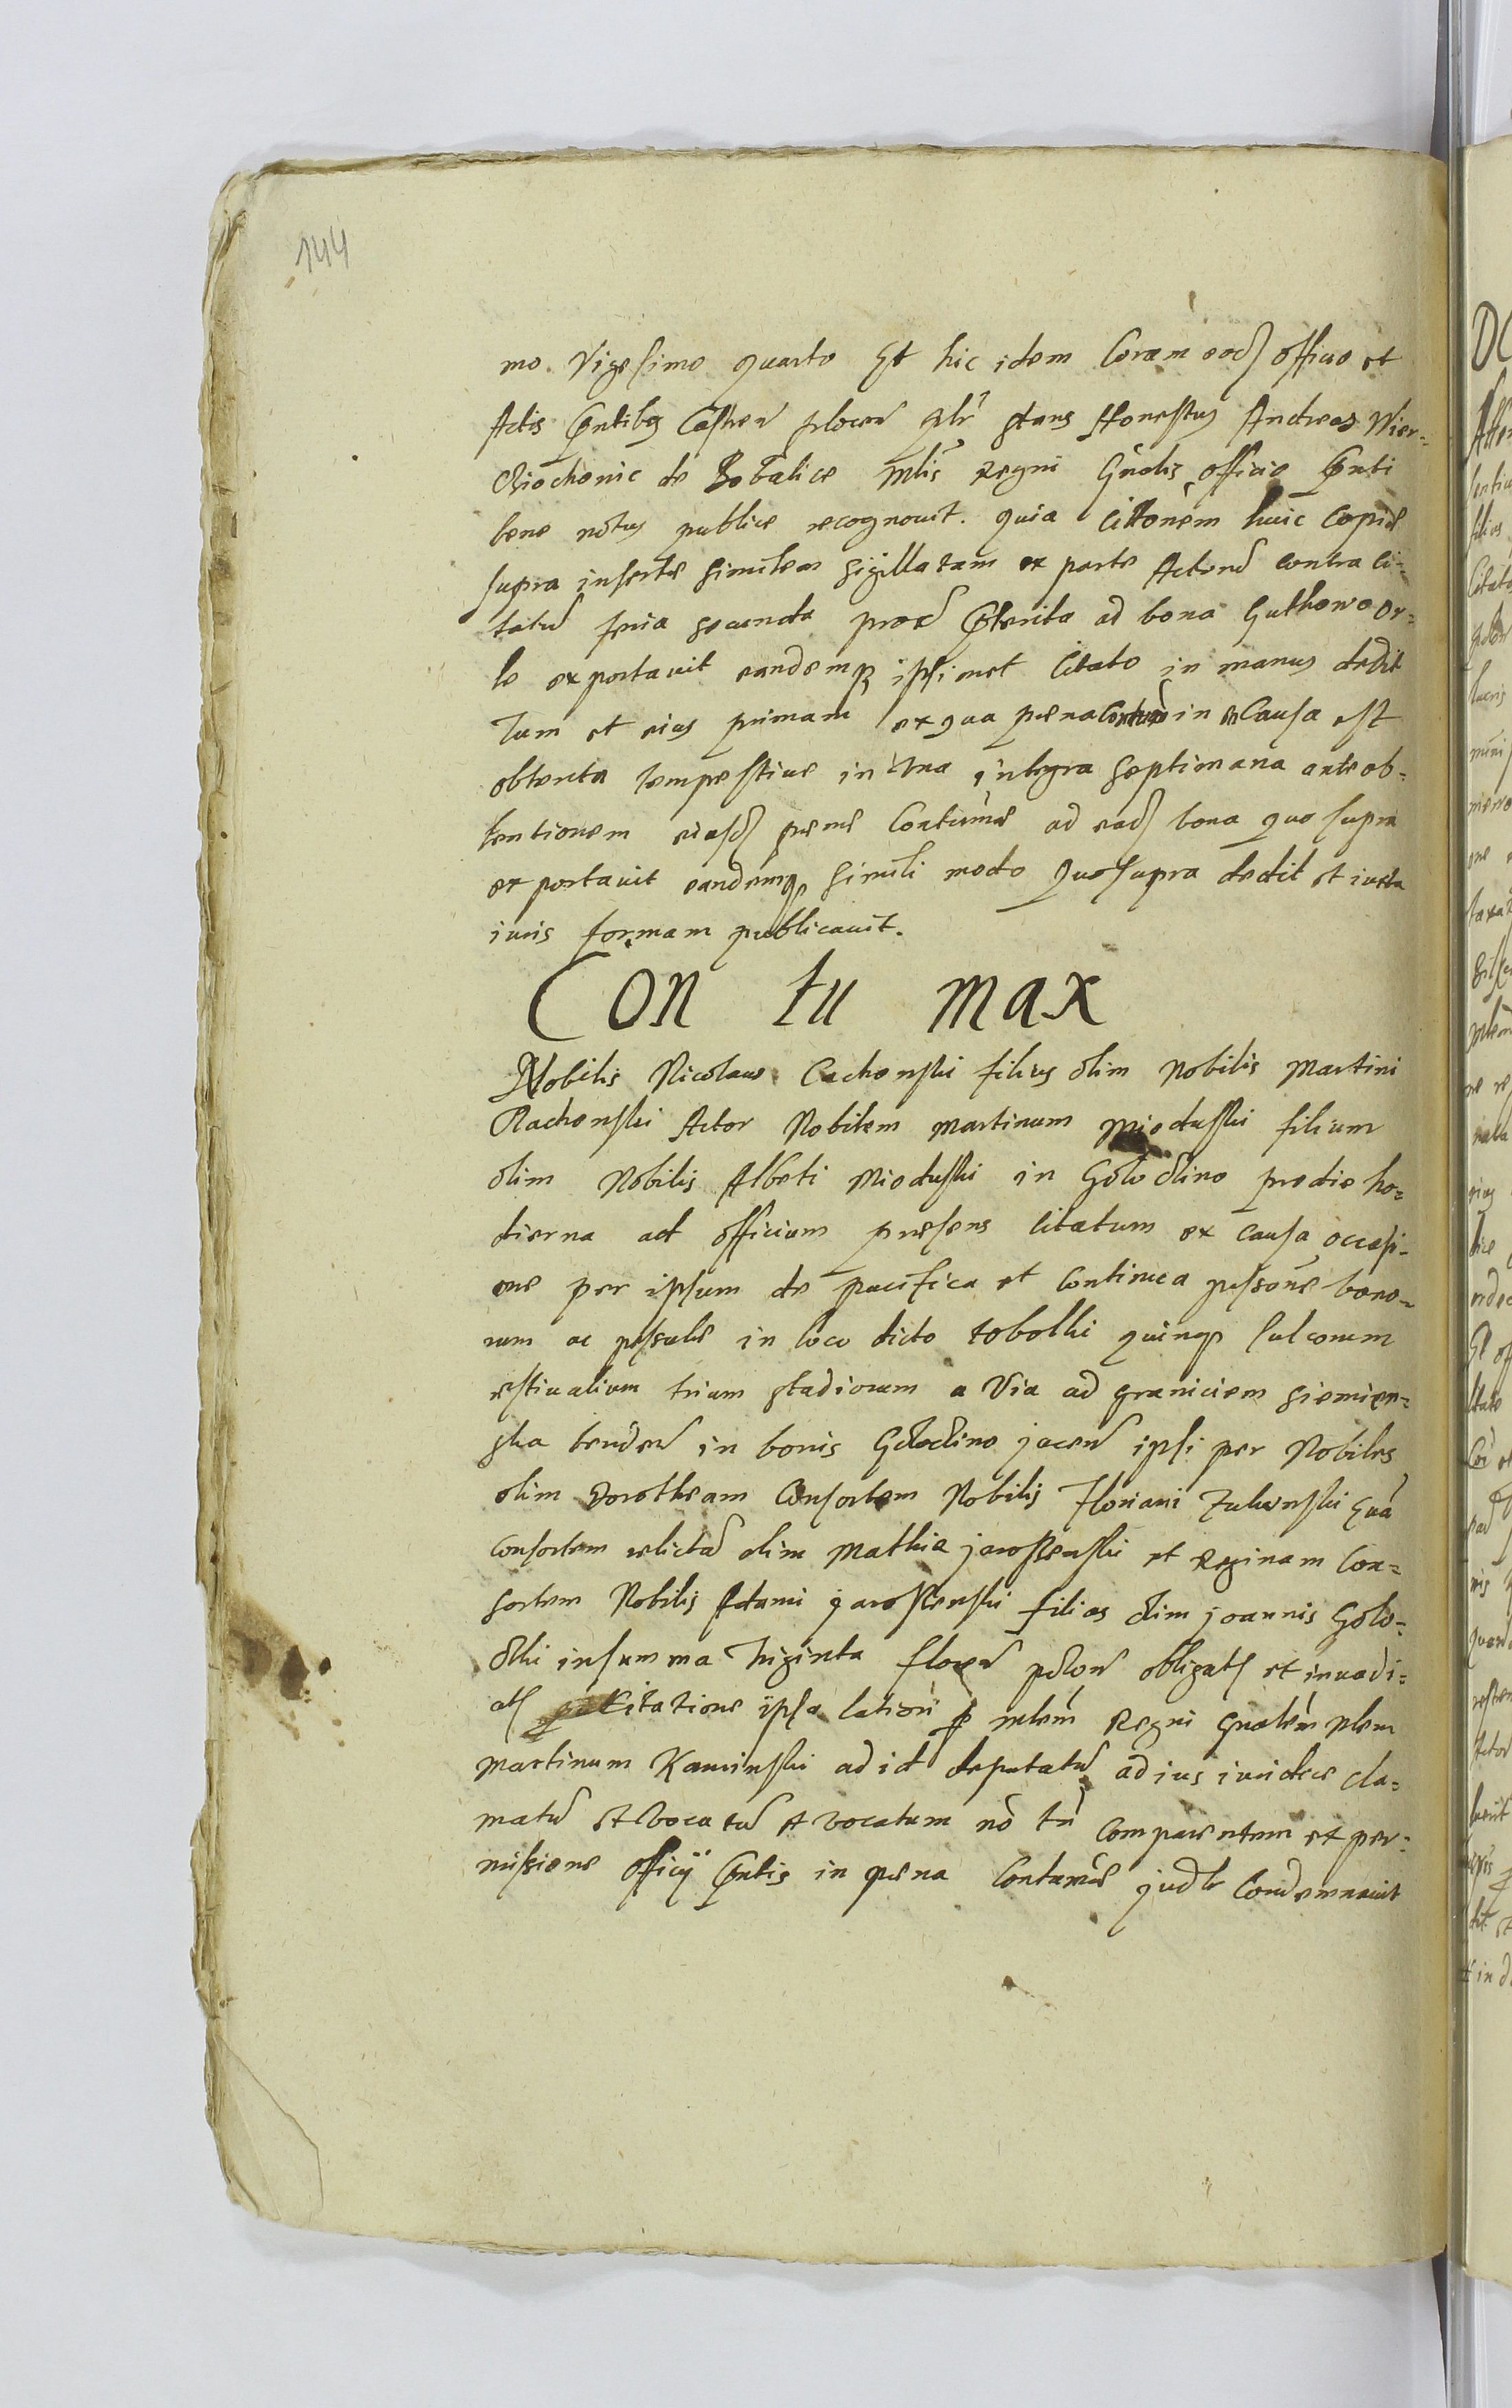 144
mo. Vigesimo quarto Et hic idem Coram eod officio et
Actis Pntibg Castren plocen plr stans Honestus Andreas Wier-
de Bobalice Mlis Regni Gnalis officio Pnti
bene notus publice recognouit. quia Cittonem huic Copie
supra inserte similem sigillatam ex parte Actoru contra ci-
tatu feria secunda prox Pterita ad bona Guthowo Or-
le exportauit eandemq ipsimet Citato in manus dedit
Tum et eius primam ex qua pena in Causa est
obtenta tempestiue in Vna integra septimana ante ob-
tentionem eiusd pene Contume ad ead bona quo supra
exportauit eandemq simili modo quo supra dedit et iuxta
iuris formam publicauit.
Con tu max
Nobilis Nicolaus Cachenski filius olim Nobilis Martini
Rachenski Actor Nobilem Martinum Mioduski filium
olim Nobilis Alberti Mioduski in Golodlino pro die ho-
dierna ad officium presens citatum ex causa occasi-
one per ipsum de pacifica et continua possone bono-
rum ac in loco dicto tobolki quinq sulcorum
estiualium trium stadiorum a Via ad graniciem siemien-
ska tenden in bonis Golodlino jacen ipsi per Nobiles
olim Dorotheam Consortem Nobilis Floriani Zulewski
consortem relicta olim Mathia jaroszewski et Reginam Con-
sortem Nobilis Adami jaroszewski filias olim joannis Golo-
dlki in summa Triginta floren polon obligat et inuadi-
at Citatione ipsa lation p mlem Regni Gnalem
Martinum Kaminski ad id deputatu ad ius iudice cla-
matu et vocatum no tn comparentem et per-
missione officij Pntis in pena Contume judlr Condemnauit